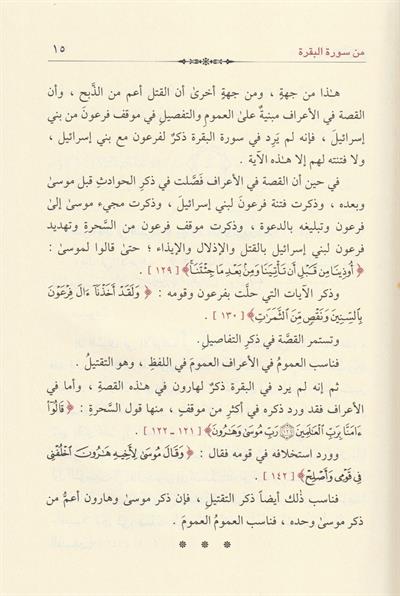 من سورة البقرة ١٥
هـٰذا من جهةٍ ، ومن جهةٍ أخرىٰ أن القتل أعم من الذَّبح ، وأن
القصة في الأعراف مبنيةٌ علىٰ العموم والتفصيل في موقف فرعونَ من بني
إسرائيلَ ، فإنه لم يَرِد في سورة البقرة ذكرٌ لفرعون مع بني إسرائيل ،
ولا فتنته لهم إلا هـٰذه الآية .
في حين أن القصة في الأعراف فَصَّلت في ذكرِ الحوادثِ قبل موسىٰ
وبعده ، وذكرت فتنة فرعونَ لبني إسرائيلَ ، وذكرت مجيء موسىٰ إلىٰ
فرعون وتبليغه بالدعوة ، وذكرت موقف فرعون من السَّحرةِ وتهديد
فرعون لبني إسرائيل بالقتل والإذلال والإيذاء ؛ حتىٰ قالوا لموسىٰ :
﴿ أُوذِينَا مِن قَبْلِ أَن تَأْتِيَنَا وَمِنۢ بَعْدِ مَا جِئْتَنَا ﴾ [ ١٢٩ ] .
وذكر الآيات التي حلَّت بفرعون وقومه : ﴿ وَلَقَدْ أَخَذْنَآ ءَالَ فِرْعَوْنَ
بِٱلسِّنِينَ وَنَقْصٍ مِّنَ ٱلثَّمَرَٰتِ ﴾ [ ١٣٠ ] .
وتستمر القصَّة في ذكرِ التفاصيل .
فناسب العمومُ في الأعراف العمومَ في اللفظِ ، وهو التقتيلُ .
ثم إنه لم يرد في البقرة ذكرٌ لهارون في هـٰذه القصةِ ، وأما في
الأعراف فقد ورد ذكره في أكثرِ من موقفٍ ، منها قول السَّحرةِ : ﴿ قَالُوٓا۟
ءَامَنَّا بِرَبِّ ٱلْعَٰلَمِينَ ۝١٢١ رَبِّ مُوسَىٰ وَهَٰرُونَ ﴾ [ ١٢١ - ١٢٢ ] .
وورد استخلافه في قومه فقال : ﴿ وَقَالَ مُوسَىٰ لِأَخِيهِ هَٰرُونَ ٱخْلُفْنِى
فِى قَوْمِى وَأَصْلِحْ ﴾ [ ١٤٢ ] .
فناسب ذٰلك أيضاً ذكر التقتيلِ ، فإن ذكر موسىٰ وهارون أعمُّ من
ذكر موسىٰ وحده ، فناسب العمومُ العمومَ .
* * *